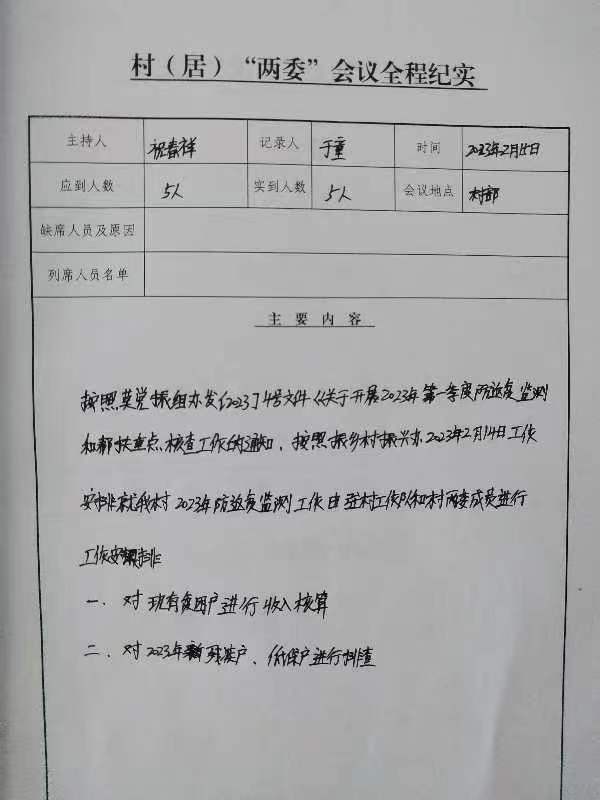 村（居）“两委”会议全程纪实
主持人 祝春祥 记录人 于童 时间 2023年2月15日
应到人数 5人 实到人数 5人 会议地点 村部
缺席人员及原因
列席人员名单
主要内容
按照莫党振组办发〔2023〕4号文件《关于开展2023年第一季度防返贫监测
和帮扶重点核查工作的通知，按照振乡村振兴办2023年2月14日工作
安排就我村2023年防返贫监测工作由驻村工作队和村两委成员进行
工作安排
一、对现有贫困户进行收入核算
二、对2023年新残疾户、低保户进行排查